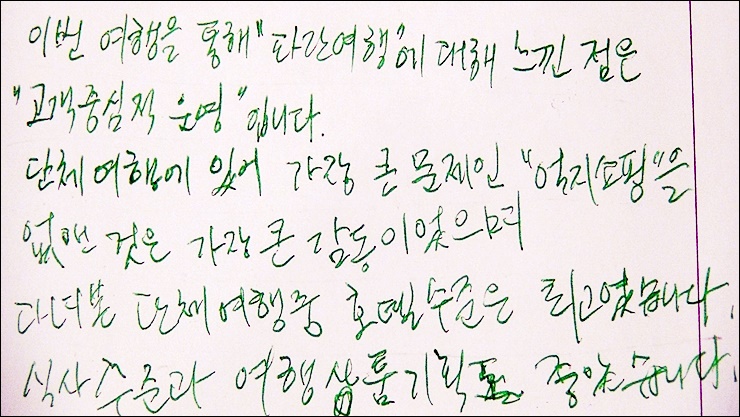 이번 여행을 통해 "파란여행"에 대해 느낀 점은
"고객중심적 운영"입니다.
단체여행에 있어 가장 큰 문제인 "억지쇼핑"을
없앤 것은 가장 큰 감동이었으며
다녀본 단체여행중 호텔수준은 최고였습니다.
식사수준과 여행상품기획도 좋았습니다.